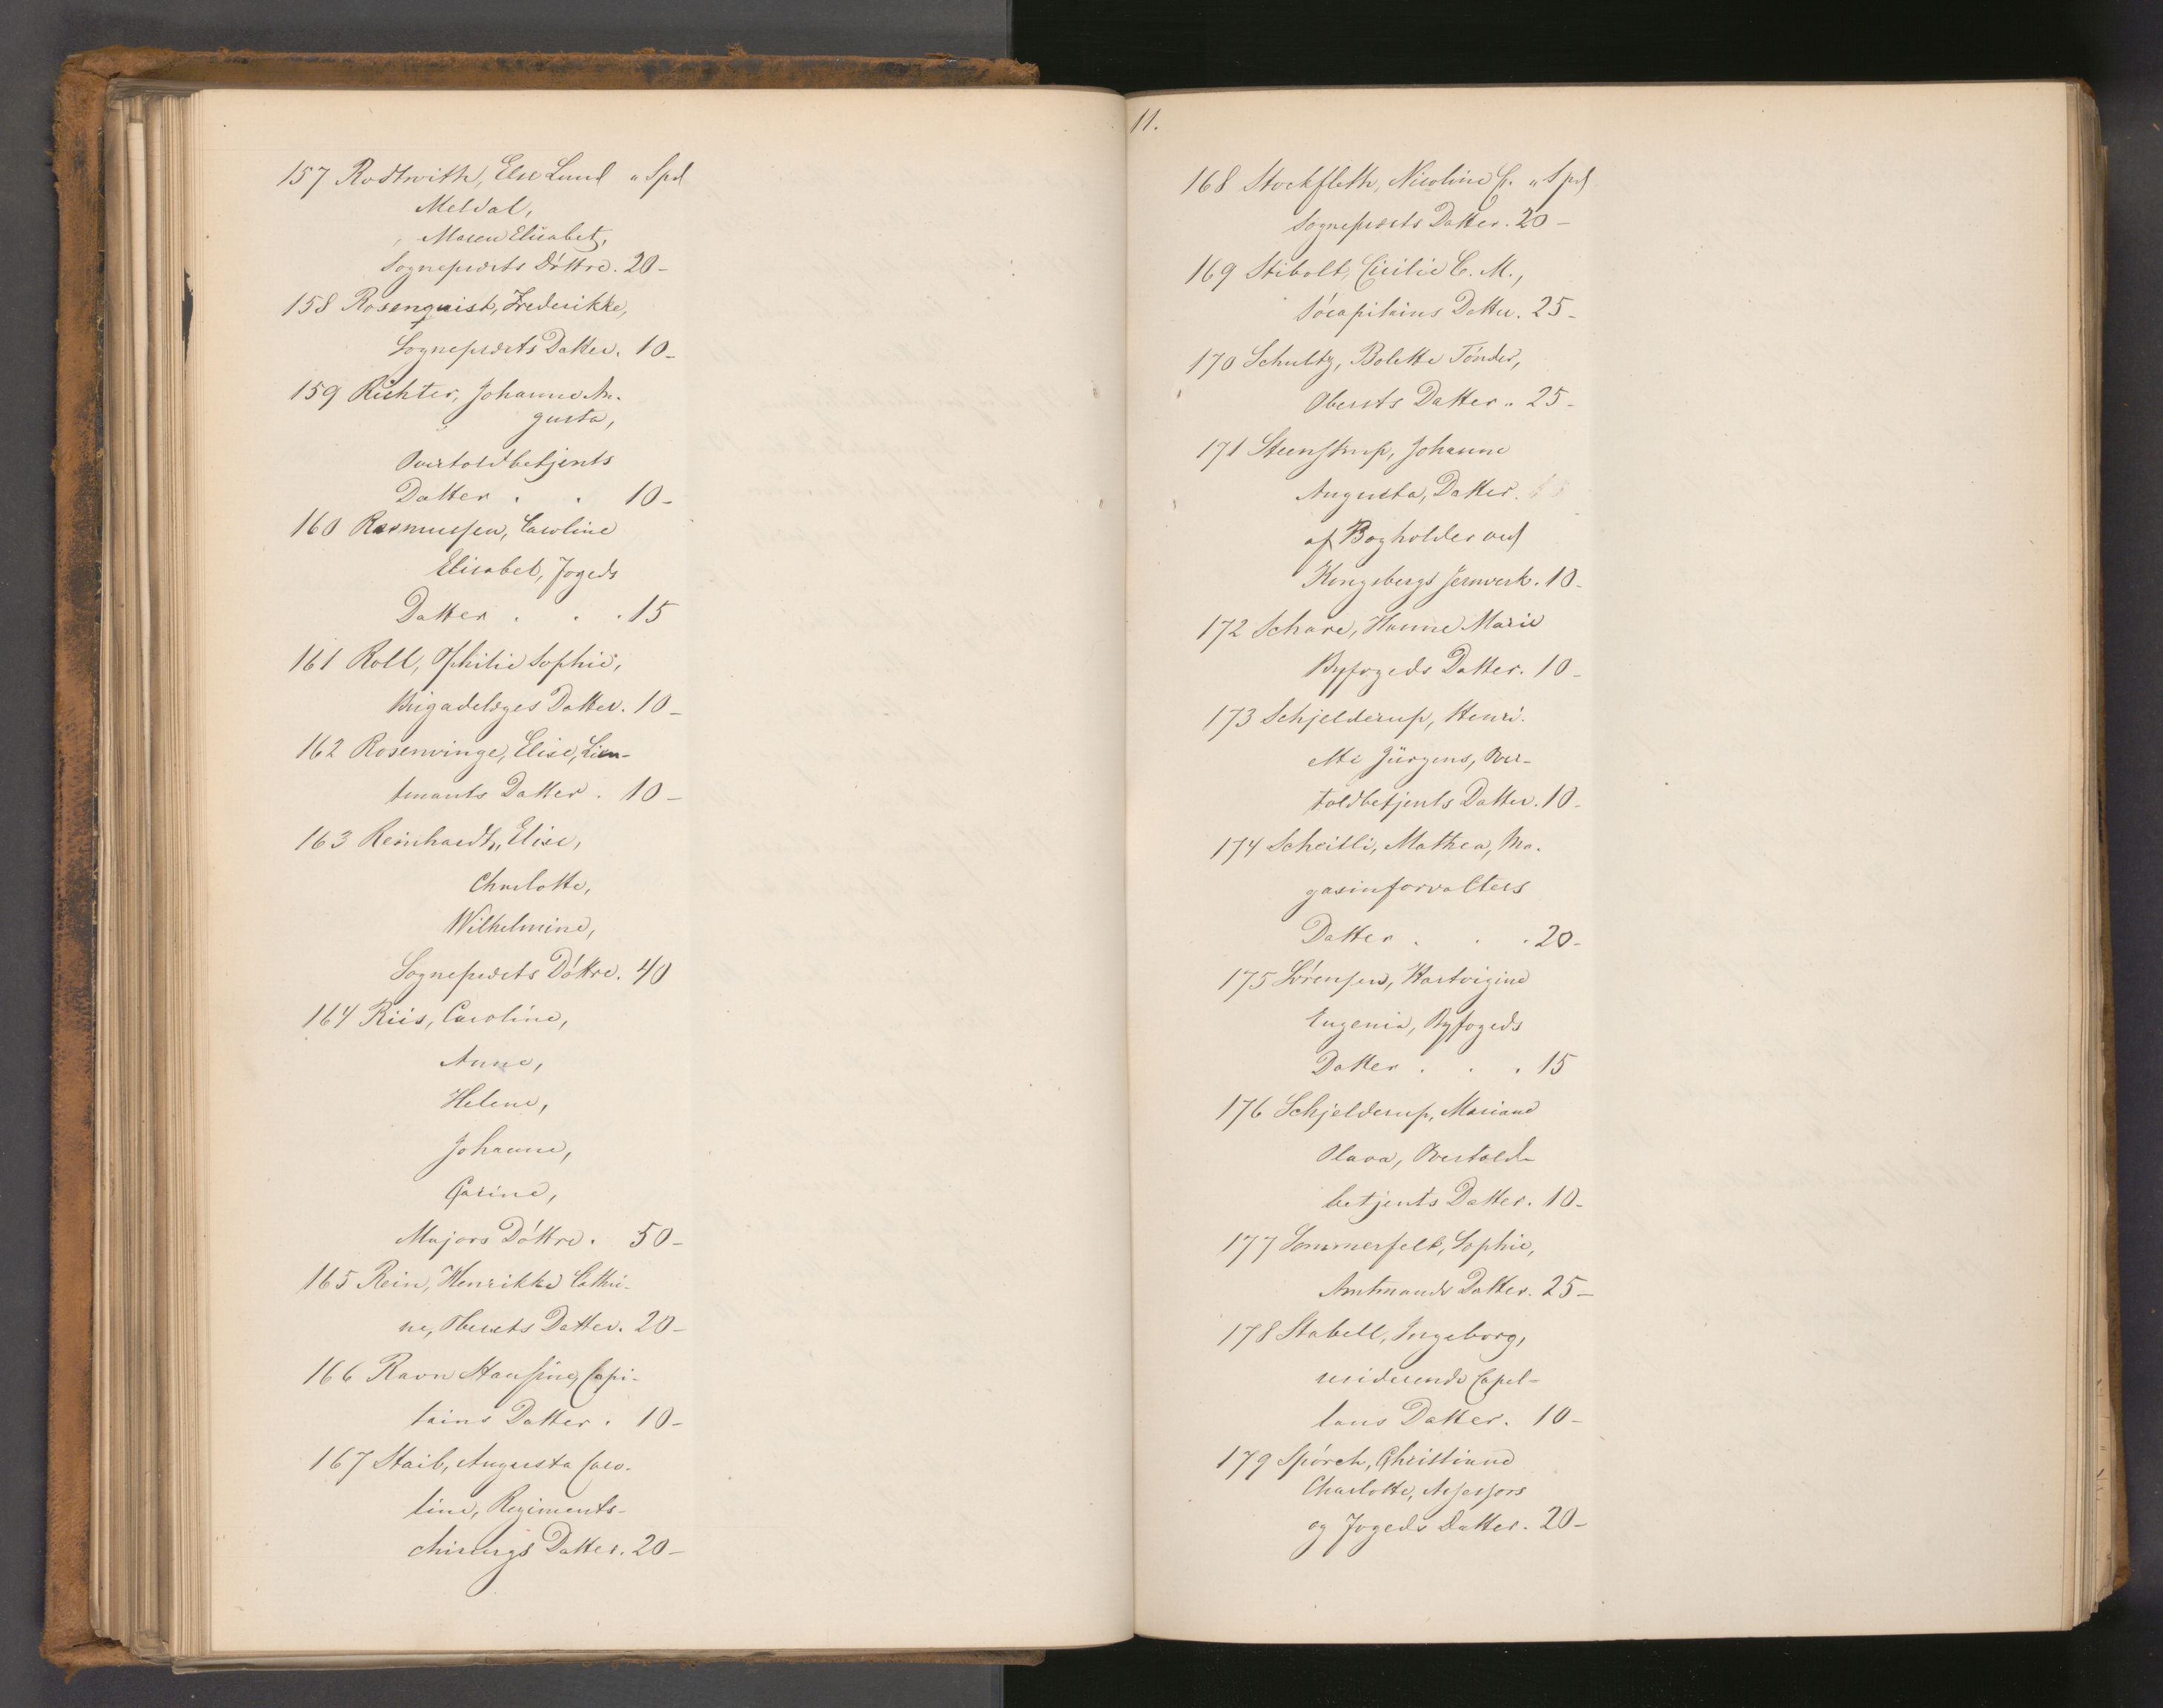 157 Rodtwith, Else Lund " Spd
Meldal,
Maren Elisabet,
Sogneprests Döttre. 20 -
158 Rosenquist, Frederikke,
Sogneprests Datter. 10 -
159 Richter, Johanne Au-
gusta,
Overtoldbetjents
Datter . . 10 -
160 Rasmussen, Caroline
Elisabet, Fogeds
Datter . . . 15
161 Roll, Ophilie Sophie,
Brigadelæges Datter. 10 -
162 Rosenvinge, Elise, Lieu-
tenants Datter . 10 -
163 Reinhardt, Elise,
Charlotte,
Wilhelmine,
Sogneprests Döttre. 40
164 Riis, Caroline,
Anne,
Helene,
Johanne,
Carine,
Majors Döttre . 50 -
165 Rein, Henrikke Cathri-
ne, Obersts Datter. 20 -
166 Ravn Hansine, Capi-
tains Datter . 10 -
167 Staib, Augusta Caro-
line, Regiments-
chirurgs Datter. 20 -
11.
168 Stockfleth, Nicoline C. " Spd
Sogneprests Datter. 20 -
169 Stibolt, Cicilie C. M.,
Söcapitains Datter. 25 -
170 Schultz, Bolette Tönder,
Obersts Datter .. 25 -
171 Steenstrup, Johanne
Augusta, Datter.
af Bogholder ved
Kongsbergs Jernverk. 10 -
172 Schare, Hanne Marie
Byfogeds Datter. 10 -
173 Schjelderup, Henri-
ette Jürgens, Over-
toldbetjents Datter. 10 -
174 Scheitli, Mathea, Ma-
gasinforvalters
Datter . . . 20 -
175 Sörensen, Hartvigine
Eugenia, Byfogeds
Datter . . . 15
176 Schjelderup, Mariane
Olava, Overtold-
betjents Datter. 10 -
177 Sommerfelt, Sophie,
Amtmands Datter. 25 -
178 Stabell, Ingeborg,
residerende Capel-
lans Datter. 10 -
179 Spörck, Christiane
Charlotte, Assessors
og Fogeds Datter. 20 -